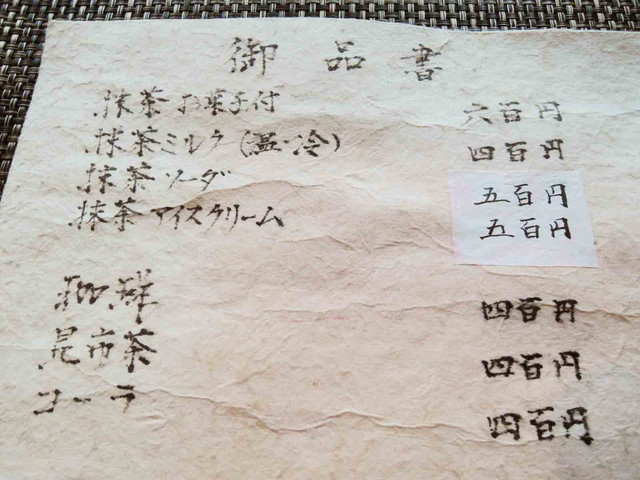 御品書
抹茶 お菓子付 六百円
抹茶ミルク(温・冷) 四百円
抹茶ソーダ 五百円
抹茶アイスクリーム 五百円
珈琲 四百円
昆布茶 四百円
コーラ 四百円